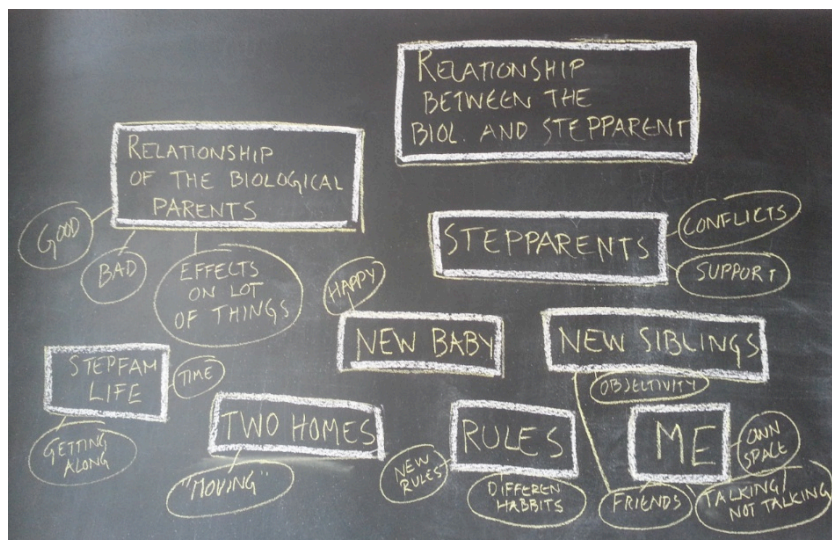 RELATIONSHIP
BETWEEN THE
BIOL. AND STEPPARENT
RELATIONSHIP
OF THE BIOLOGICAL
PARENTS
GOOD
BAD
EFFECTS
ON LOT
OF THINGS
STEPPARENTS
CONFLICTS
SUPPORT
HAPPY
NEW BABY
NEW SIBLINGS
OBJECTIVITY
STEPFAM
LIFE
TIME
GETTING
ALONG
TWO HOMES
"MOVING"
RULES
NEW
RULES
DIFFEREN
HABBITS
ME
OWN
SPACE
FRIENDS
TALKING/
NOT TALKING